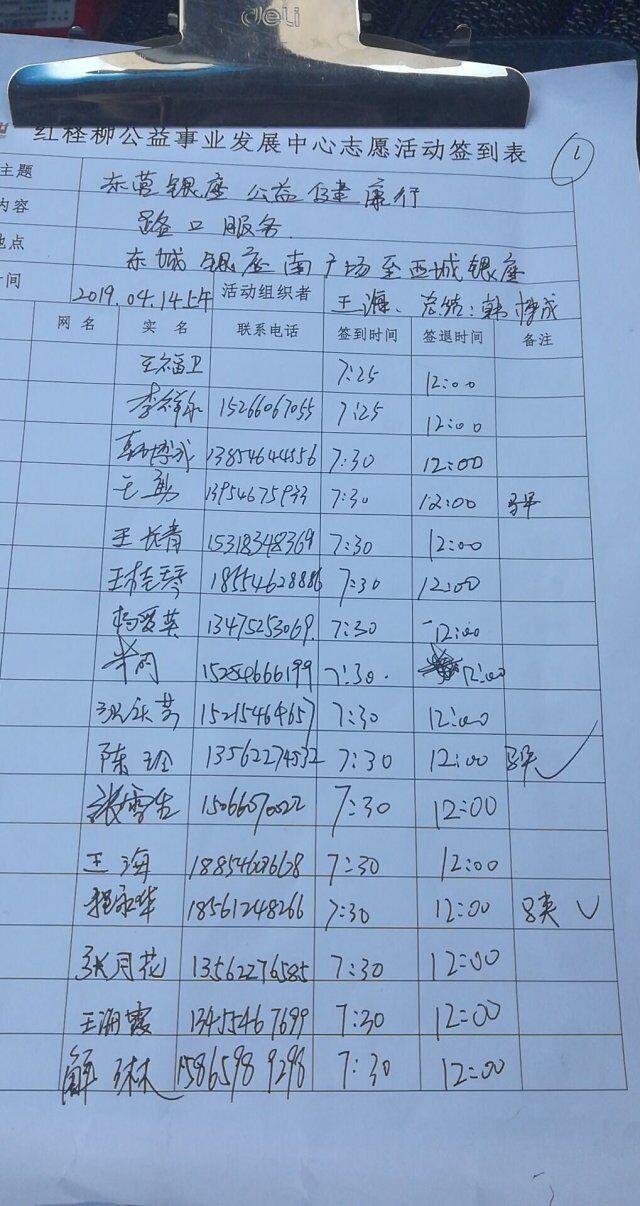 deli
红柽柳公益事业发展中心志愿活动签到表
1
主题 东营银座公益健康行
内容 路口服务
地点 东城银座南广场至西城银座
时间 2019.04.14上午 活动组织者 王海、总结:韩博成
网名 实名 联系电话 签到时间 签退时间 备注
王福卫 7:25 12:00
李祥永 15266067055 7:25 12:00
韩博成 13854644556 7:30 12:00
王勇 13954675933 7:30 12:00
王长青 15318348369 7:30 12:00
王桂琴 18554628886 7:30 12:00
杨爱英 13475253069. 7:30 12:00
15254666199 7:30. 12:00
15215464657 7:30 12:00
陈玲 13562274532 7:30 12:00
张雪 15066070522 7:30 12:00
王海 7:30 12:00
程永华 18561248266 7:30 12:00
张月花 13562276585 7:30 12:00
王海霞 13455467699 7:30 12:00
解琳 15865989298 7:30 12:00